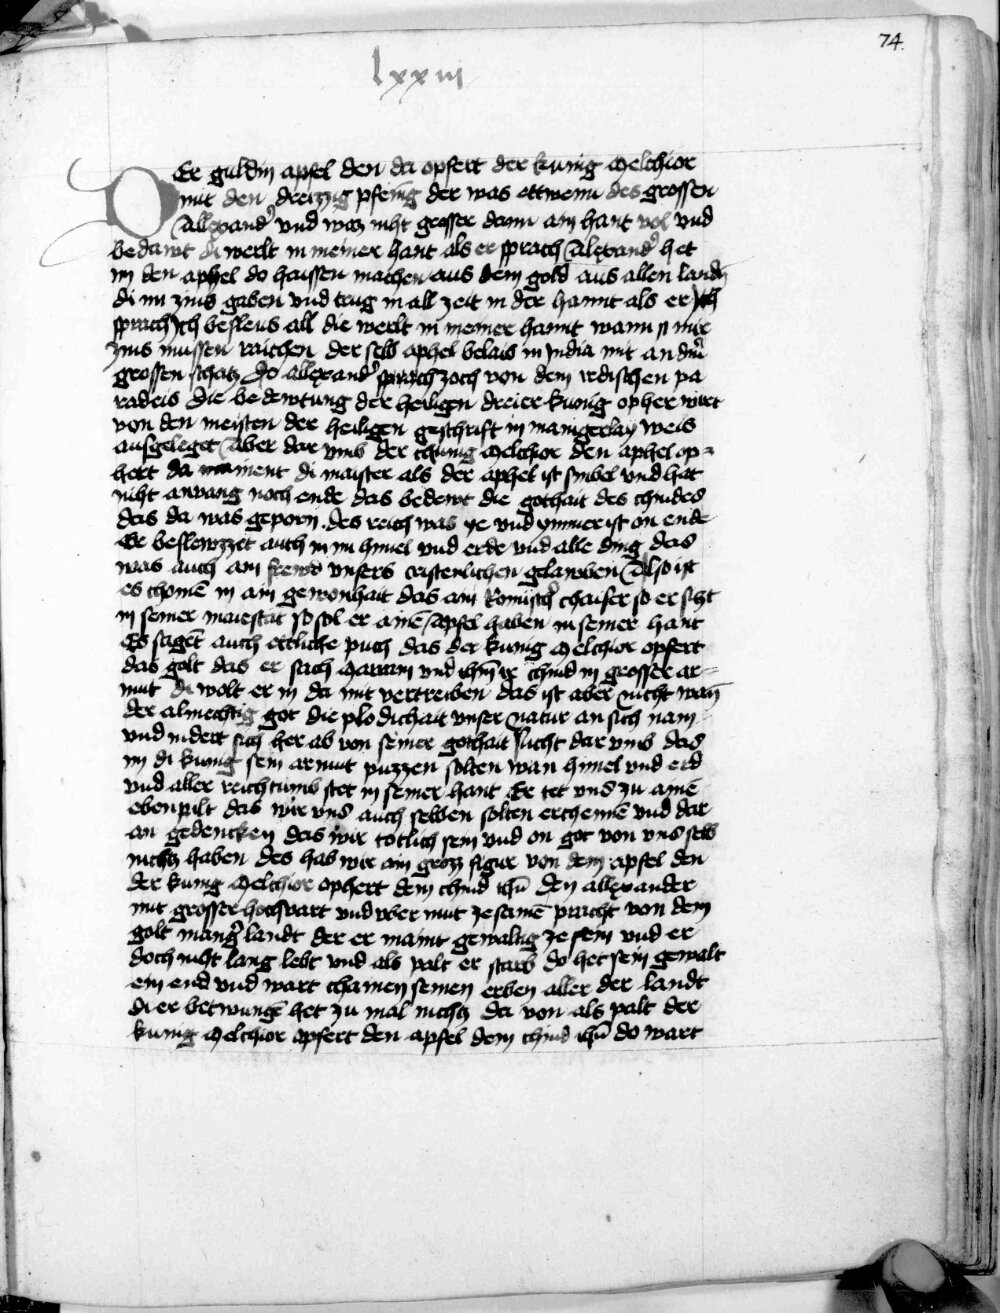 74.
lxxiii
Der guldin apfel den da opfert der kunig Melchior
mit den dreizzig pfenīg der was ettwenn des grossen
Allexand' vnd waz niht grosser dann ain hant vol vnd
bedawt di werlt in meiner hant als er sprach Alexand' het
im den aphel do haissen machen aus dem gold aus allen landn
di im zins gaben vnd trug in all zeit in der hannt als er
sprach Ich besleus all die werlt in meiner hannt wann si mir
zins mussen raichen der selb aphel belaib in India mit andm̄
grossen schatz do Allexand' zoch von dem irdischen pa
radeis Die bedewtung der heiligen dreier kunig opher wirt
von den meisten der heiligen geschrift in manigerlay weis
ausgeleget Aber dar vmb der chunig Melchior den aphel op=
hert da mainent di maister als der aphel ist sinbel vnd hat
niht anvang noch ende das bedewt die gothait des chindes
das da was geporn. des reich was ye vnd ymmer ist on ende
Er beslewzzet auch in im himel vnd erde vnd alle ding das
was auch ain frewd vnsers cristenlichen gelawben Also ist
es chomē in ain gewonhait das ain Romisch' chaiser so er sitzt
in seiner maiestat so sol er ainē Apfel haben in seiner hant
Es sagēt auch ettliche puch das der kunig Melchior opfert
das golt das er sach Mariam vnd ir chind in grosser ar=
mut di wolt er in da mit vertreiben das ist aber nicht wan̄
der almechtig got die plodichait vnser natur an sich nam
vnd nidert sich her ab von seiner gothait nicht dar vmb das
im di kunig sein armut puzzen solten wan himel vnd erd
vnd aller reichtumb stet in seiner hant Er tet vns zu ainē
ebenpilt das wir vns auch selben solten erchennē vnd dar
an gedencken das wir totlich sein vnd on got von vns selb
nichtz haben des hab wir ain grozz figur von dem apfel den
der kunig Melchior ophert dem chind ihū den allexander
mit grosser hochvart vnd vber mut zesamē pracht von dem
golt mang' landt der er maint gewaltig ze sein vnd er
doch niht lang lebt vnd als palt er starb do het sein gewalt
ein end vnd wart chainen seinen erben aller der landt
di er betwungē het zu mal nichtz da von als palt der
kunig Melchior opfert den apfel dem chind ihū do wart